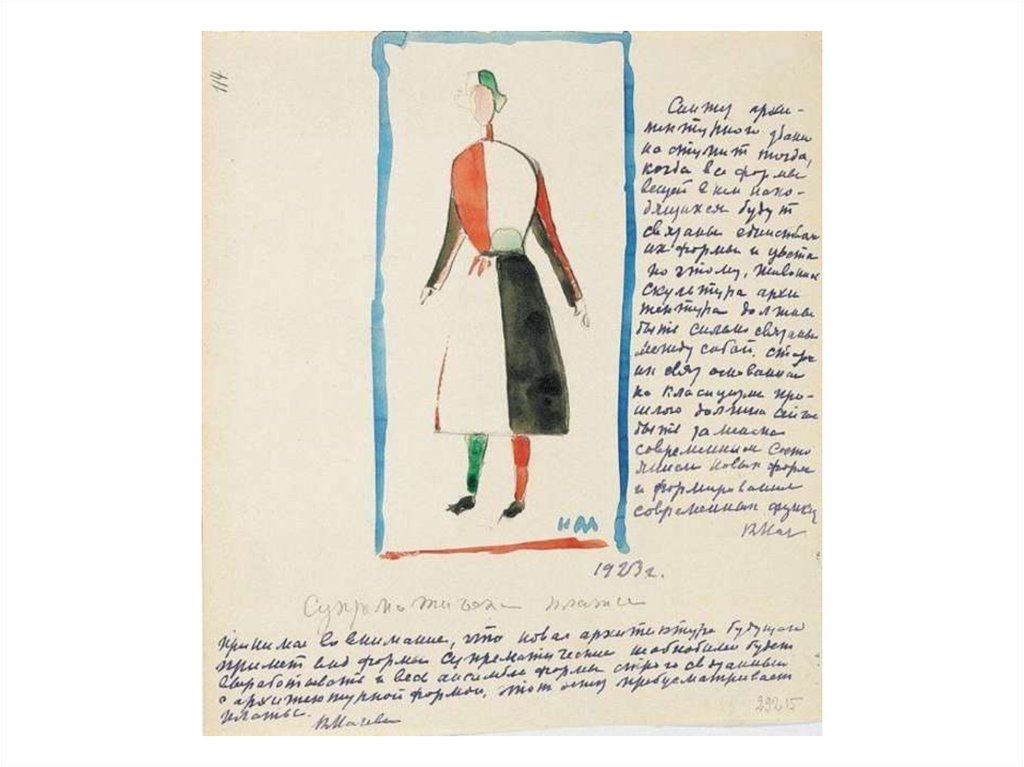 114
архи-
тектурного здан
наступит тогда,
когда все формы
вещей в нем нахо-
дящихся будут
связаны единством
их формы и цвета
по этому,
скульптура архи
тектура должны
быть сильно связаны
между собой.
их связ основанная
на класицизме про-
шлого должна
быть заменена
современным состо
новых форм
и формирование
современных функц
1923 г.
Супрематическ платье
Принимая во внимание, что новая архитектура будущего
примет вид формы супрематические необходимо будет
выработывать и весь ансамбль формы строго связанный
с архитектурной формой, этот эскиз предусматривает
платье.
29215